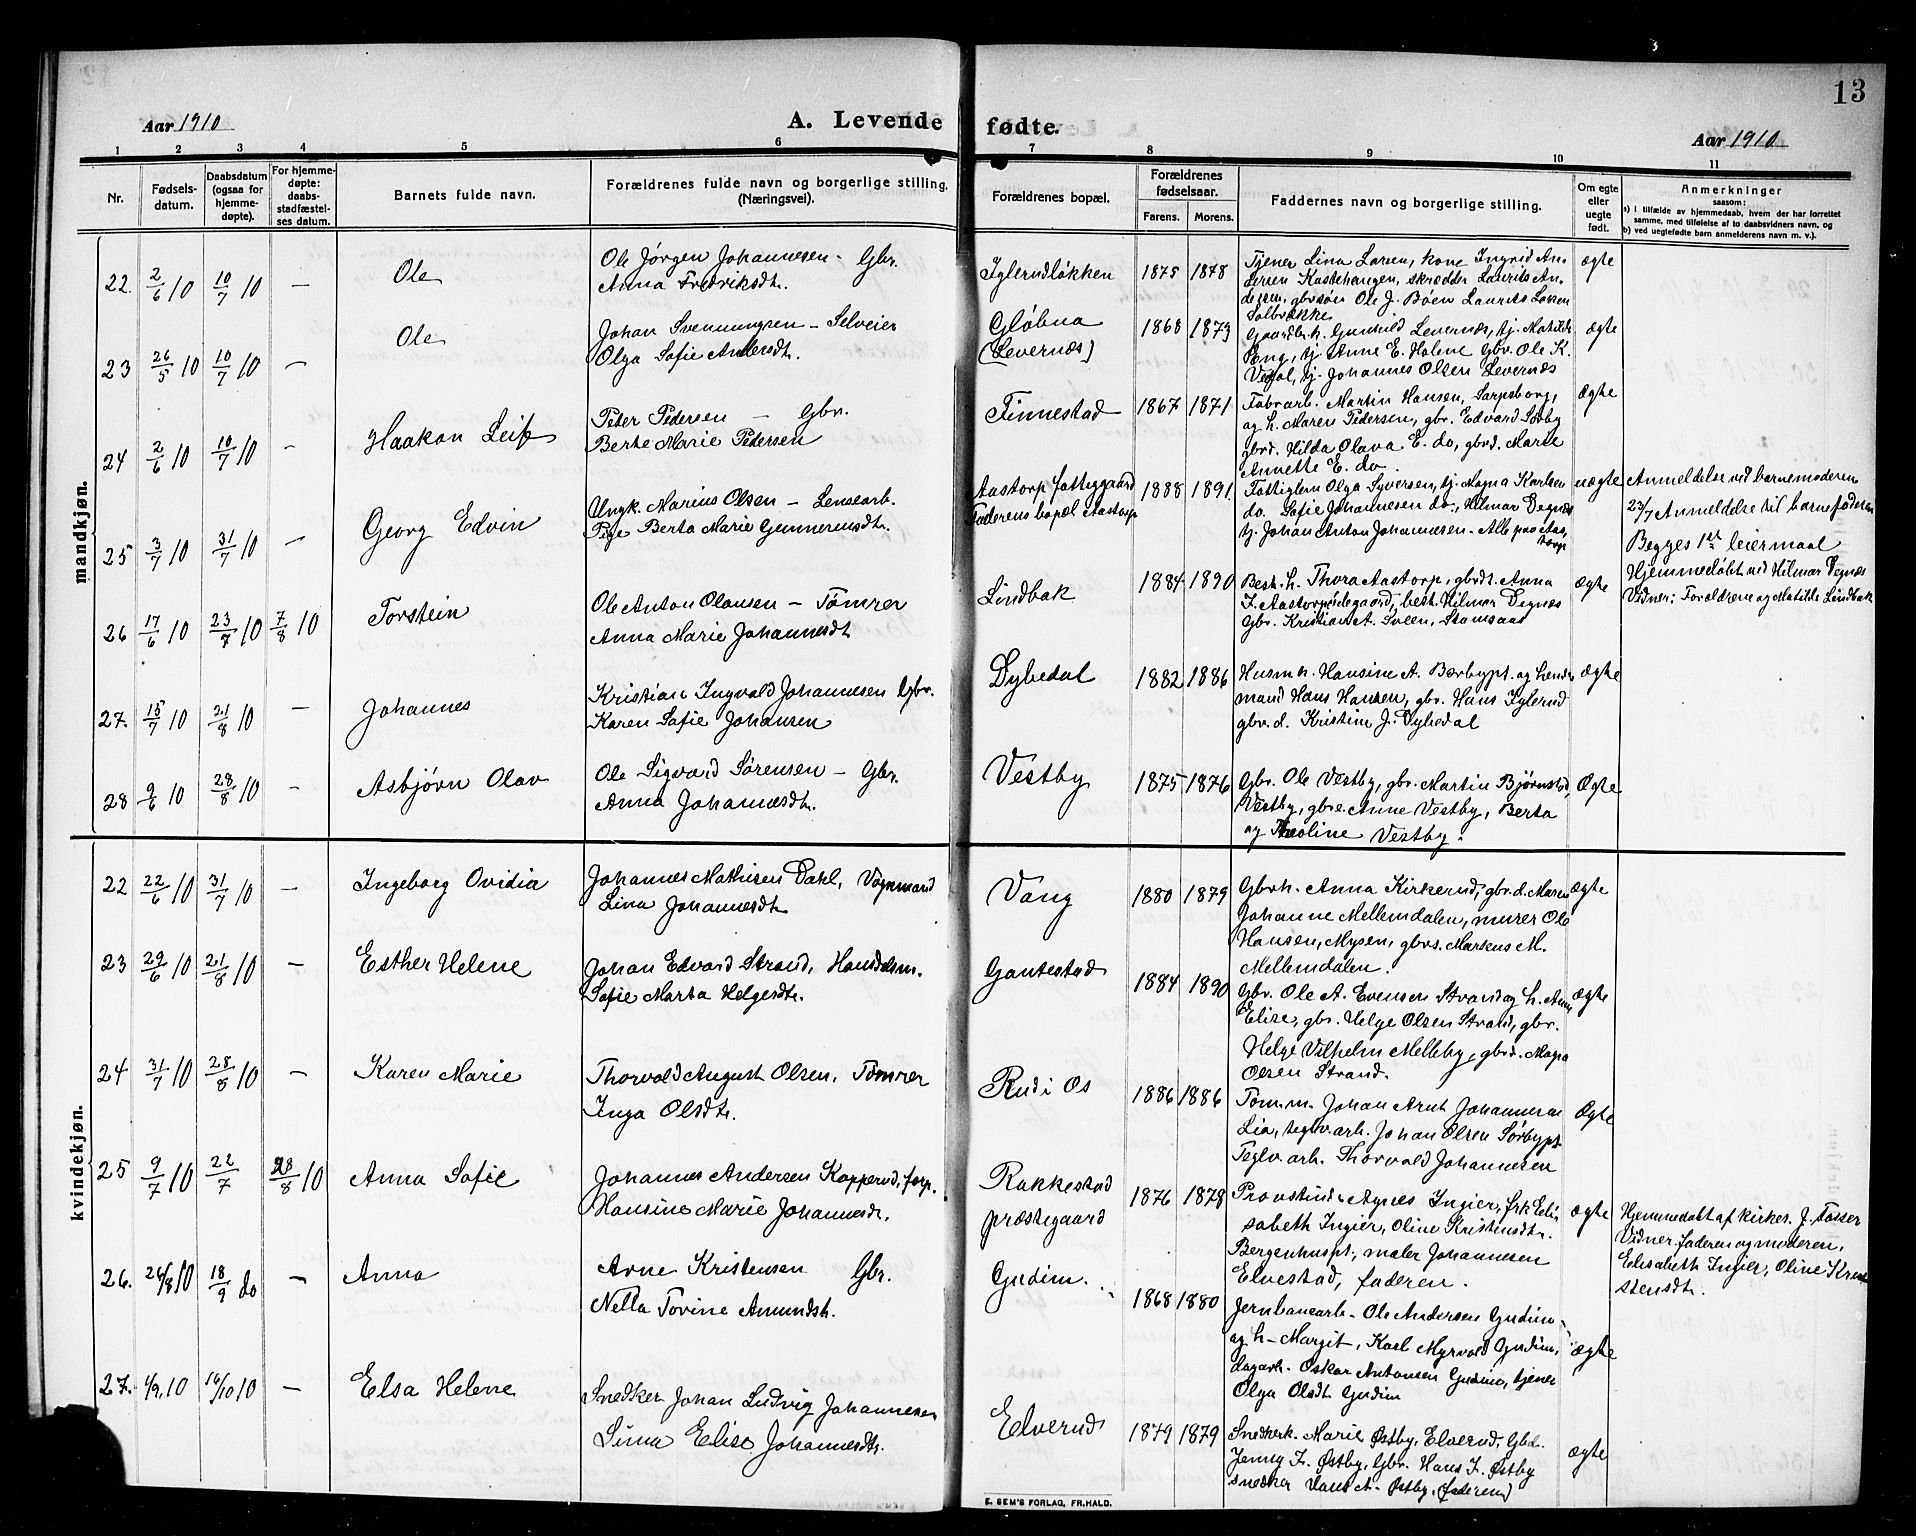 13
Aar 1910
A. Levende fødte.
Aar 1910
1 2 3 4 5 6 7 8 9 10 11
Nr.
Fødsels-
datum.
Daabsdatum
(ogsaa for
hjemme-
døpte).
For hjemme-
døpte:
daabs-
stadfæstel-
ses datum.
Barnets fulde navn.
Forældrenes fulde navn og borgerlige stilling.
(Næringsvei).
Forældrenes bopæl.
Forældrenes
fødselsaar.
Farens. Morens.
Faddernes navn og borgerlige stilling.
Om egte
eller
uegte
født.
Anmerkninger
saasom:
a) i tilfælde av hjemmedaab, hvem der har forrettet
samme, med tilføielse af to daabsvidners navn, og
b) ved uegtefødte barn anmelderens navn m. v.).
mandkjøn.
22. 2/6 10 10/7 10 — Ole
Ole Jørgen Johannesen - Gbr.
Anna Fredriksdt.
Iglerudløkken 1875 1878
Tjener Lina Larsen, kone Ingrid An-
dersen Kastehangen, skrædder Laurits An-
dersen, gbrsøn Ole J. Bøen Laurits Løken
Solbrække
ægte
23 26/5 10 10/7 10 — Ole
Johan Svenningsen - Selveier
Olga Sofie Andersdt.
Gløbna
(Levernæs)
1868 1873
Gaardbr.h. Gunhild Levernæs, tj. Matilde
Tong, tj. Anne E. Holene Gbr. Ole K.
tj. Johannes Olsen Levernæs
ægte
24 2/6 10 10/7 10 - Haakon Leif
Peter Pedersen — Gbr.
Berte Marie Pedersen
Finnestad 1867 1871
Fabrarb. Martin Hansen, Sarpsborg,
og h. Maren Pedersen, gbr. Edvard Sørby
gbrd. Hilda Olava E. do, gbrd. Marie
Annette E. do.
Ægte
25 3/7 10 31/7 10 — Georg Edvin
Ungk. Marius Olsen - Lensearb.
Pige Berta Marie Gunneriusdt.
Aastorp fattiggaard
Faderens bopæl Aastorp
1888 1891.
Fattiglem Olga Syversen, tj. Magna Karlsen
do. Sofie Johannesen do., Hilmar Degnes
tj. Johan Anton Johannesen - Alle paa Aas-
torp
uægte
Anmeldelse ved barnemoderen
23/7 Anmeldelse til barnefaderen
Begges 1ste leiermaal
26 17/6 10 23/7 10 7/8 10 Torstein
Ole Anton Olausen - Tømrer
Anna Marie Johannesdt
Lindbak 1884 1890
Best. h. Thora Aastorp, gbrdt. Anna
J. Aastorpødegaard, best. Hilmar Degnæs
Gbr. Kristian A. Sveen, Stamsaas
ægte
Hjemmedøbt ved Hilmar Degnæs
Vidner: Forældrene og Matilde Lindbak
27. 15/7 10 21/8 10 — Johannes
Kristian Ingvald Johannesen Gbr.
Karen Sofie Johansen
Dybedal 1882 1886
Husm h. Hansine A. Børbypt. og lends-
mand Hans Hansen, gbr. Hans Iglerud
gbr. d. Kristine J. Dybedal
ægte
28 9/6 10 28/8 10 — Asbjørn Olav
Ole Sigvard Sørensen - Gbr.
Anna Johannesdt.
Vestby 1875 1876
Gbr. Ole Vestby, gbr. Martin Bjørnstad,
Vestby, gbre. Anne Vestby, Berta
og Theoline Vestby.
Ægte
kvindekjøn.
22 22/6 10 31/7 10 — Ingeborg Ovidia
Johannes Mathisen Dahl, Vognmand
Lina Johannesdt.
Vang 1880 1879
Gbrh. Anna Kirkerud, gbr. d. Maren
Johanne Mellemdalen, murer Ole
Hansen, Mysen, gbrs. Markus M.
Mellemdalen.
ægte
23 29/6 10 21/8 10 — Esther Helene
Johan Edvard Strand, Handelsm.
Sofie Marta Helgesdt.
Gautestad 1884 1890
Gbr. Ole A. Evensen Strand og h. Anne
Elise, gbr. Helge Olsen Strand, gbr.
Helge Vilhelm Melleby, gbrd. Magna
Olsen Strand.
ægte
24 31/7 10 28/8 10 — Karen Marie
Thorvald August Olsen, Tømrer
Inga Olsdt.
Rud i Os 1886 1886
Tøm.m. Johan Arnt Johannesen
Lia, teglv.arb. Johan Olsen Sørbypt.
Teglv. arb. Thorvald Johannesen
Ægte
25 9/7 10 22/7 28/8 10 Anna Sofie
Johannes Andersen Kopperud, forp.
Hansine Marie Johannesdt.
Rakkestad
præstegaard
1876 1878
Provstinde Agnes Ingier, frk Elis-
sabeth Ingier, Oline Kristensdt.
Bergenhuspt., maler Johannesen
Elvestad, faderen.
ægte
Hjemmedøbt af kirkes. J. Tosser
Vidner. faderen og moderen,
Elisabeth Ingier, Oline Kri-
stensdt.
26. 26/8 10 18/9 do — Anna
Arne Kristensen Gbr.
Nella Tovine Amundsdt.
Gudim. 1868 1880
Jernbanearb. Ole Andersen Gudim
og h- Margit, Karl Myrvold Gudim,
dagarb. Oskar Antonsen Gudim, tjener
Olga Olsdt Gudim
ægte
27. 4/9 10 16/10 10 — Elsa Helene
Snedker Johan Ludvig Johannesen
Lina Elise Johannesdt.
Elverud 1879 1879
Snedkerk. Marie Østby, Elverud, Gbd.
Jenny J. Østby, Gbr. Hans J. Østby
snedker Hans A- Østby, (faderen)
ægte
E. SEM'S FORLAG, FR.HALD.